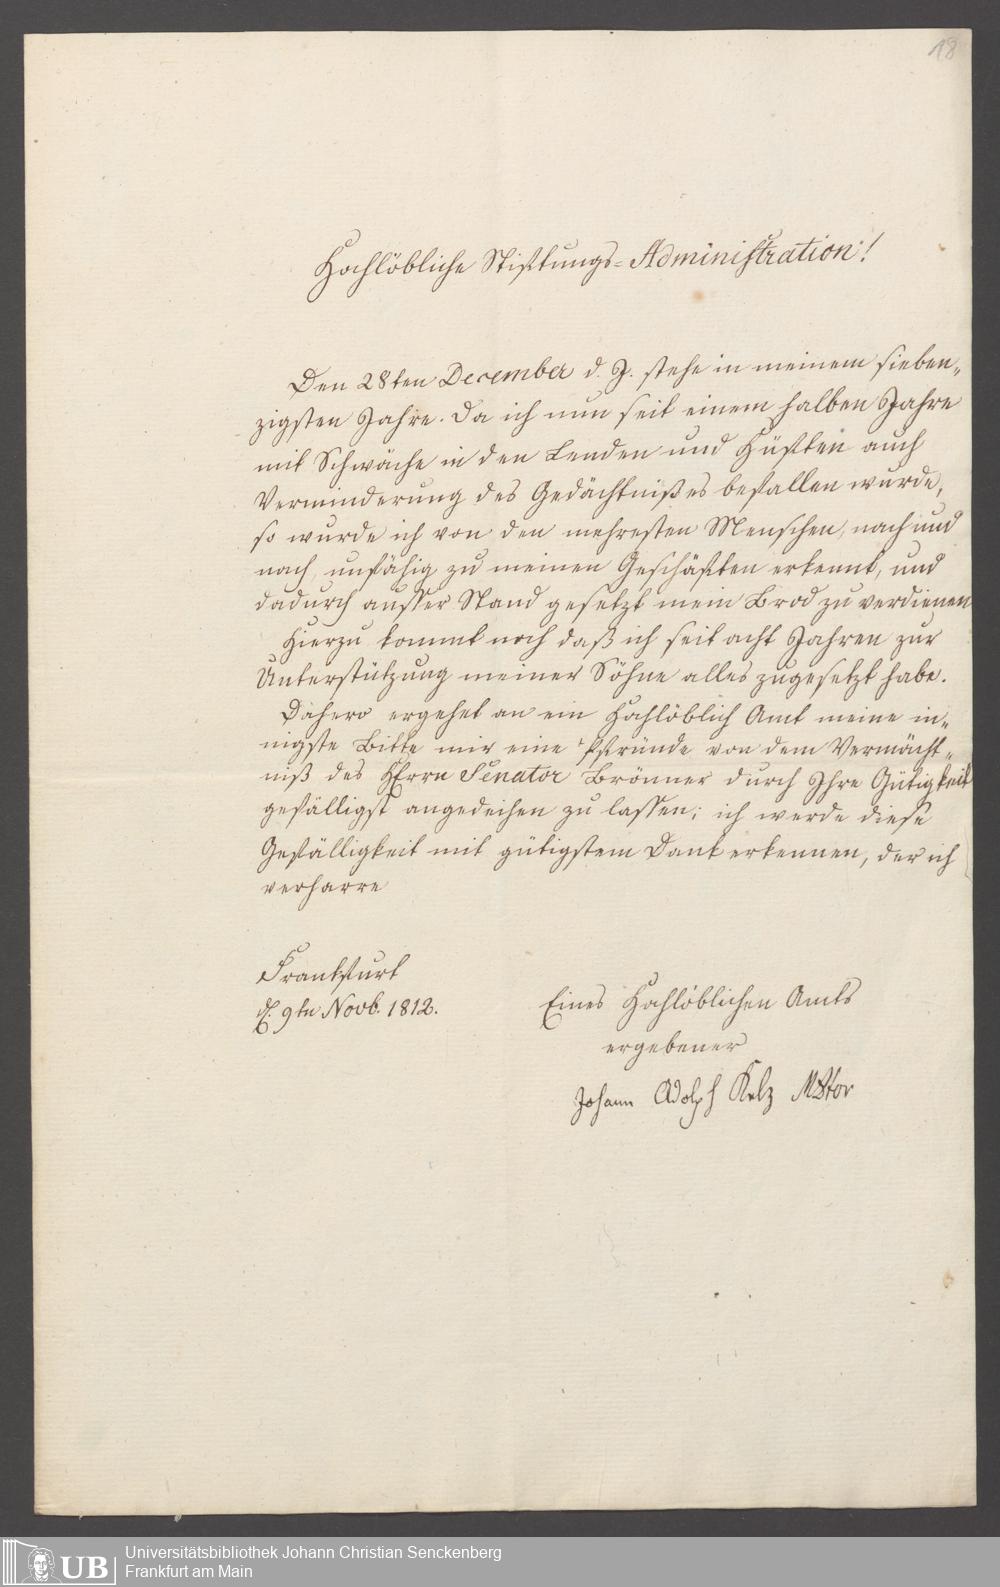 18
Hochlöbliche Stiftungs=Administration!
Den 28ten December d. J. stehe in meinem sieben„
zigsten Jahre. Da ich nun seit einem halben Jahre
mit Schwäche in den Lenden und Hüften auch
Verminderung des Gedächtnißes befallen wurde,
so wurde ich von den mehresten Menschen, nach und
nach, unfähig zu meinen Geschäften erkennt, und
dadurch ausser Stand gesetzt mein Brod zu verdienen
Hierzu kommt noch daß ich seit acht Jahren zur
Unterstützung meiner Söhne alles zugesetzt habe.
Dahero ergehet an ein Hochlöblich Amt meine in„
nigste Bitte mir eine Pfründe von dem Vermächt„
niß des HErrn Senator Brönner durch Ihre Gütigkeit
gefälligst angedeihen zu lassen; ich werde diese
Gefälligkeit mit gütigstem Dank erkennen, der ich
verharre
Frankfurt
d. 9tn Novb. 1812.
Eines Hochlöblichen Amts
ergebener
Johann Adolph Kelz
UB Universitätsbibliothek Johann Christian Senckenberg
Frankfurt am Main